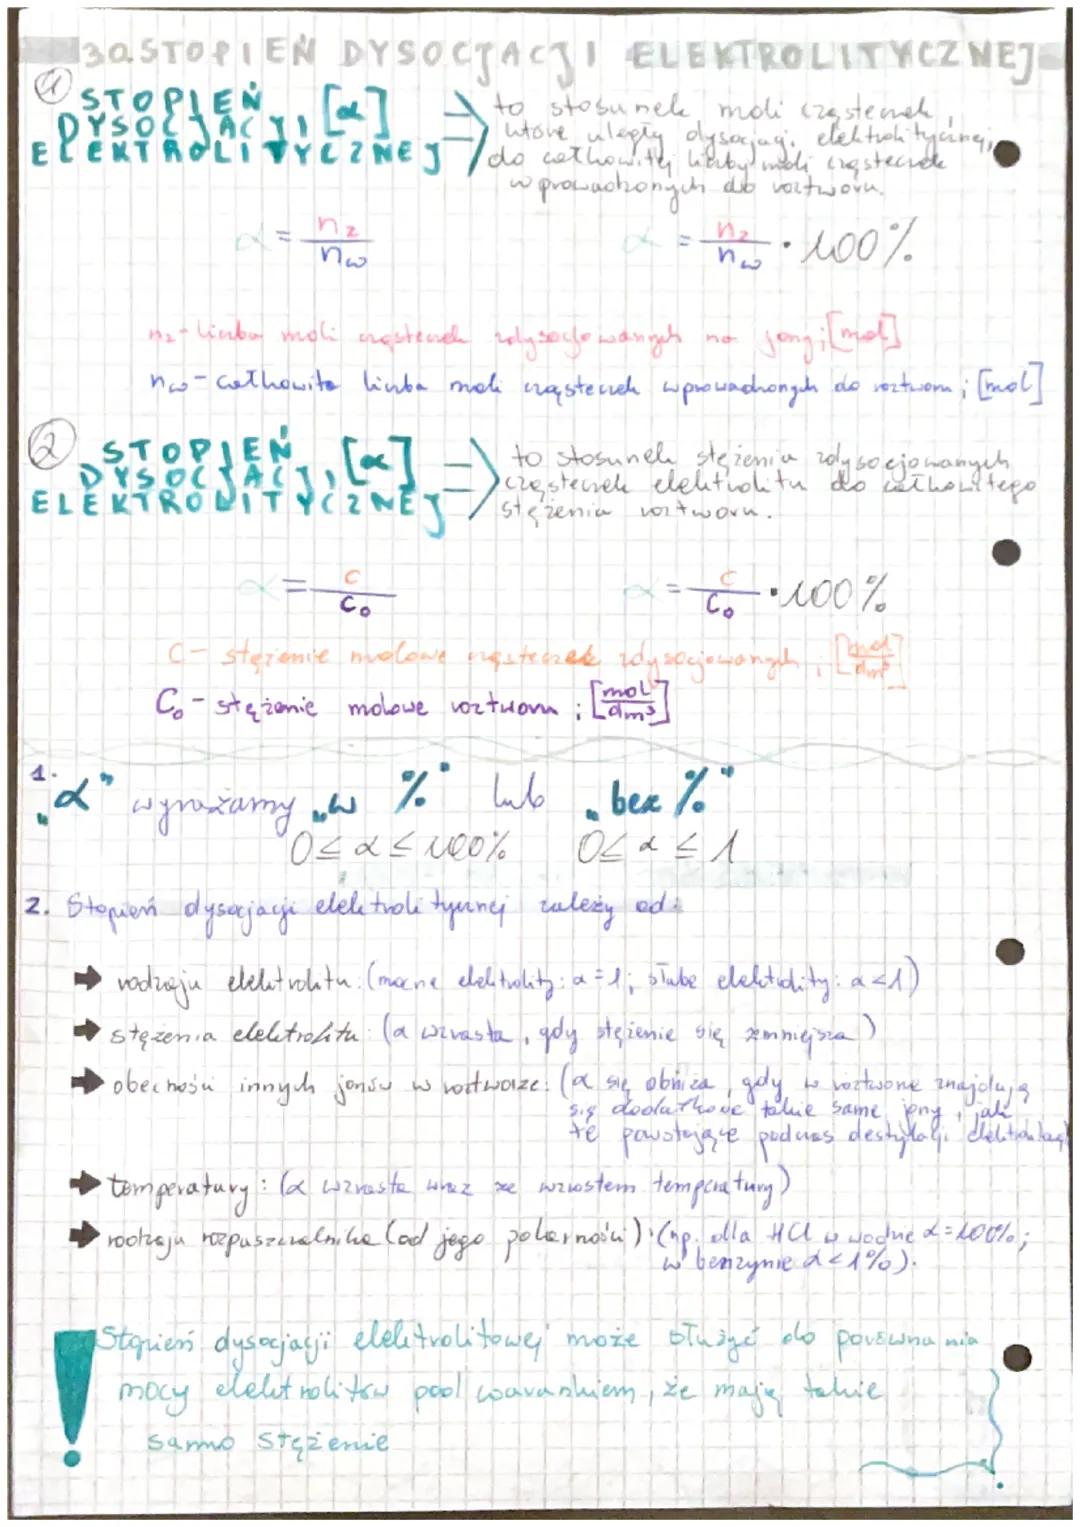 30. STOPIEŃ DYSOCJACJI ELEKTROLITYCZNEJ
① STOPIEŃ DYSOCJACJI ELEKTROLITYCZNEJ [α] ⇒ to stosunek moli cząsteczek,
które uległy dysocjacji elektrolitycznej,
do całkowitej liczby moli cząsteczek
wprowadzonych do roztworu.
α = n_z / n_w    α = n_z / n_w · 100%
n_z - liczba moli cząsteczek zdysocjowanych na jony; [mol]
n_w - całkowita liczba moli cząsteczek wprowadzonych do roztworu; [mol]
② STOPIEŃ DYSOCJACJI ELEKTROLITYCZNEJ [α] ⇒ to stosunek stężenia zdysocjowanych
cząsteczek elektrolitu do całkowitego
stężenia roztworu.
α = c / c₀    α = c / c₀ · 100%
C - stężenie molowe cząsteczek zdysocjowanych; [mol/dm³]
C₀ - stężenie molowe roztworu; [mol/dm³]
1. „α" wyrażamy „w %" lub „bez %"
0 ≤ α ≤ 100%    0 ≤ α ≤ 1
2. Stopień dysocjacji elektrolitycznej zależy od:
➡ rodzaju elektrolitu: (mocne elektrolity: α = 1; słabe elektrolity: α < 1)
➡ stężenia elektrolitu: (α wzrasta, gdy stężenie się zmniejsza)
➡ obecności innych jonów w roztworze: (α się obniża, gdy w roztworze znajdują
się dodatkowe takie same jony, jak
te powstające podczas destylacji
➡ temperatury: (α wzrasta wraz ze wzrostem temperatury)
➡ rodzaju rozpuszczalnika (od jego polarności): (np. dla HCl w wodzie α = 100%;
w benzynie α < 1%).
! Stopień dysocjacji elektrolitowej może służyć do porównania
mocy elektrolitów pod warunkiem, że mają takie
samo stężenie